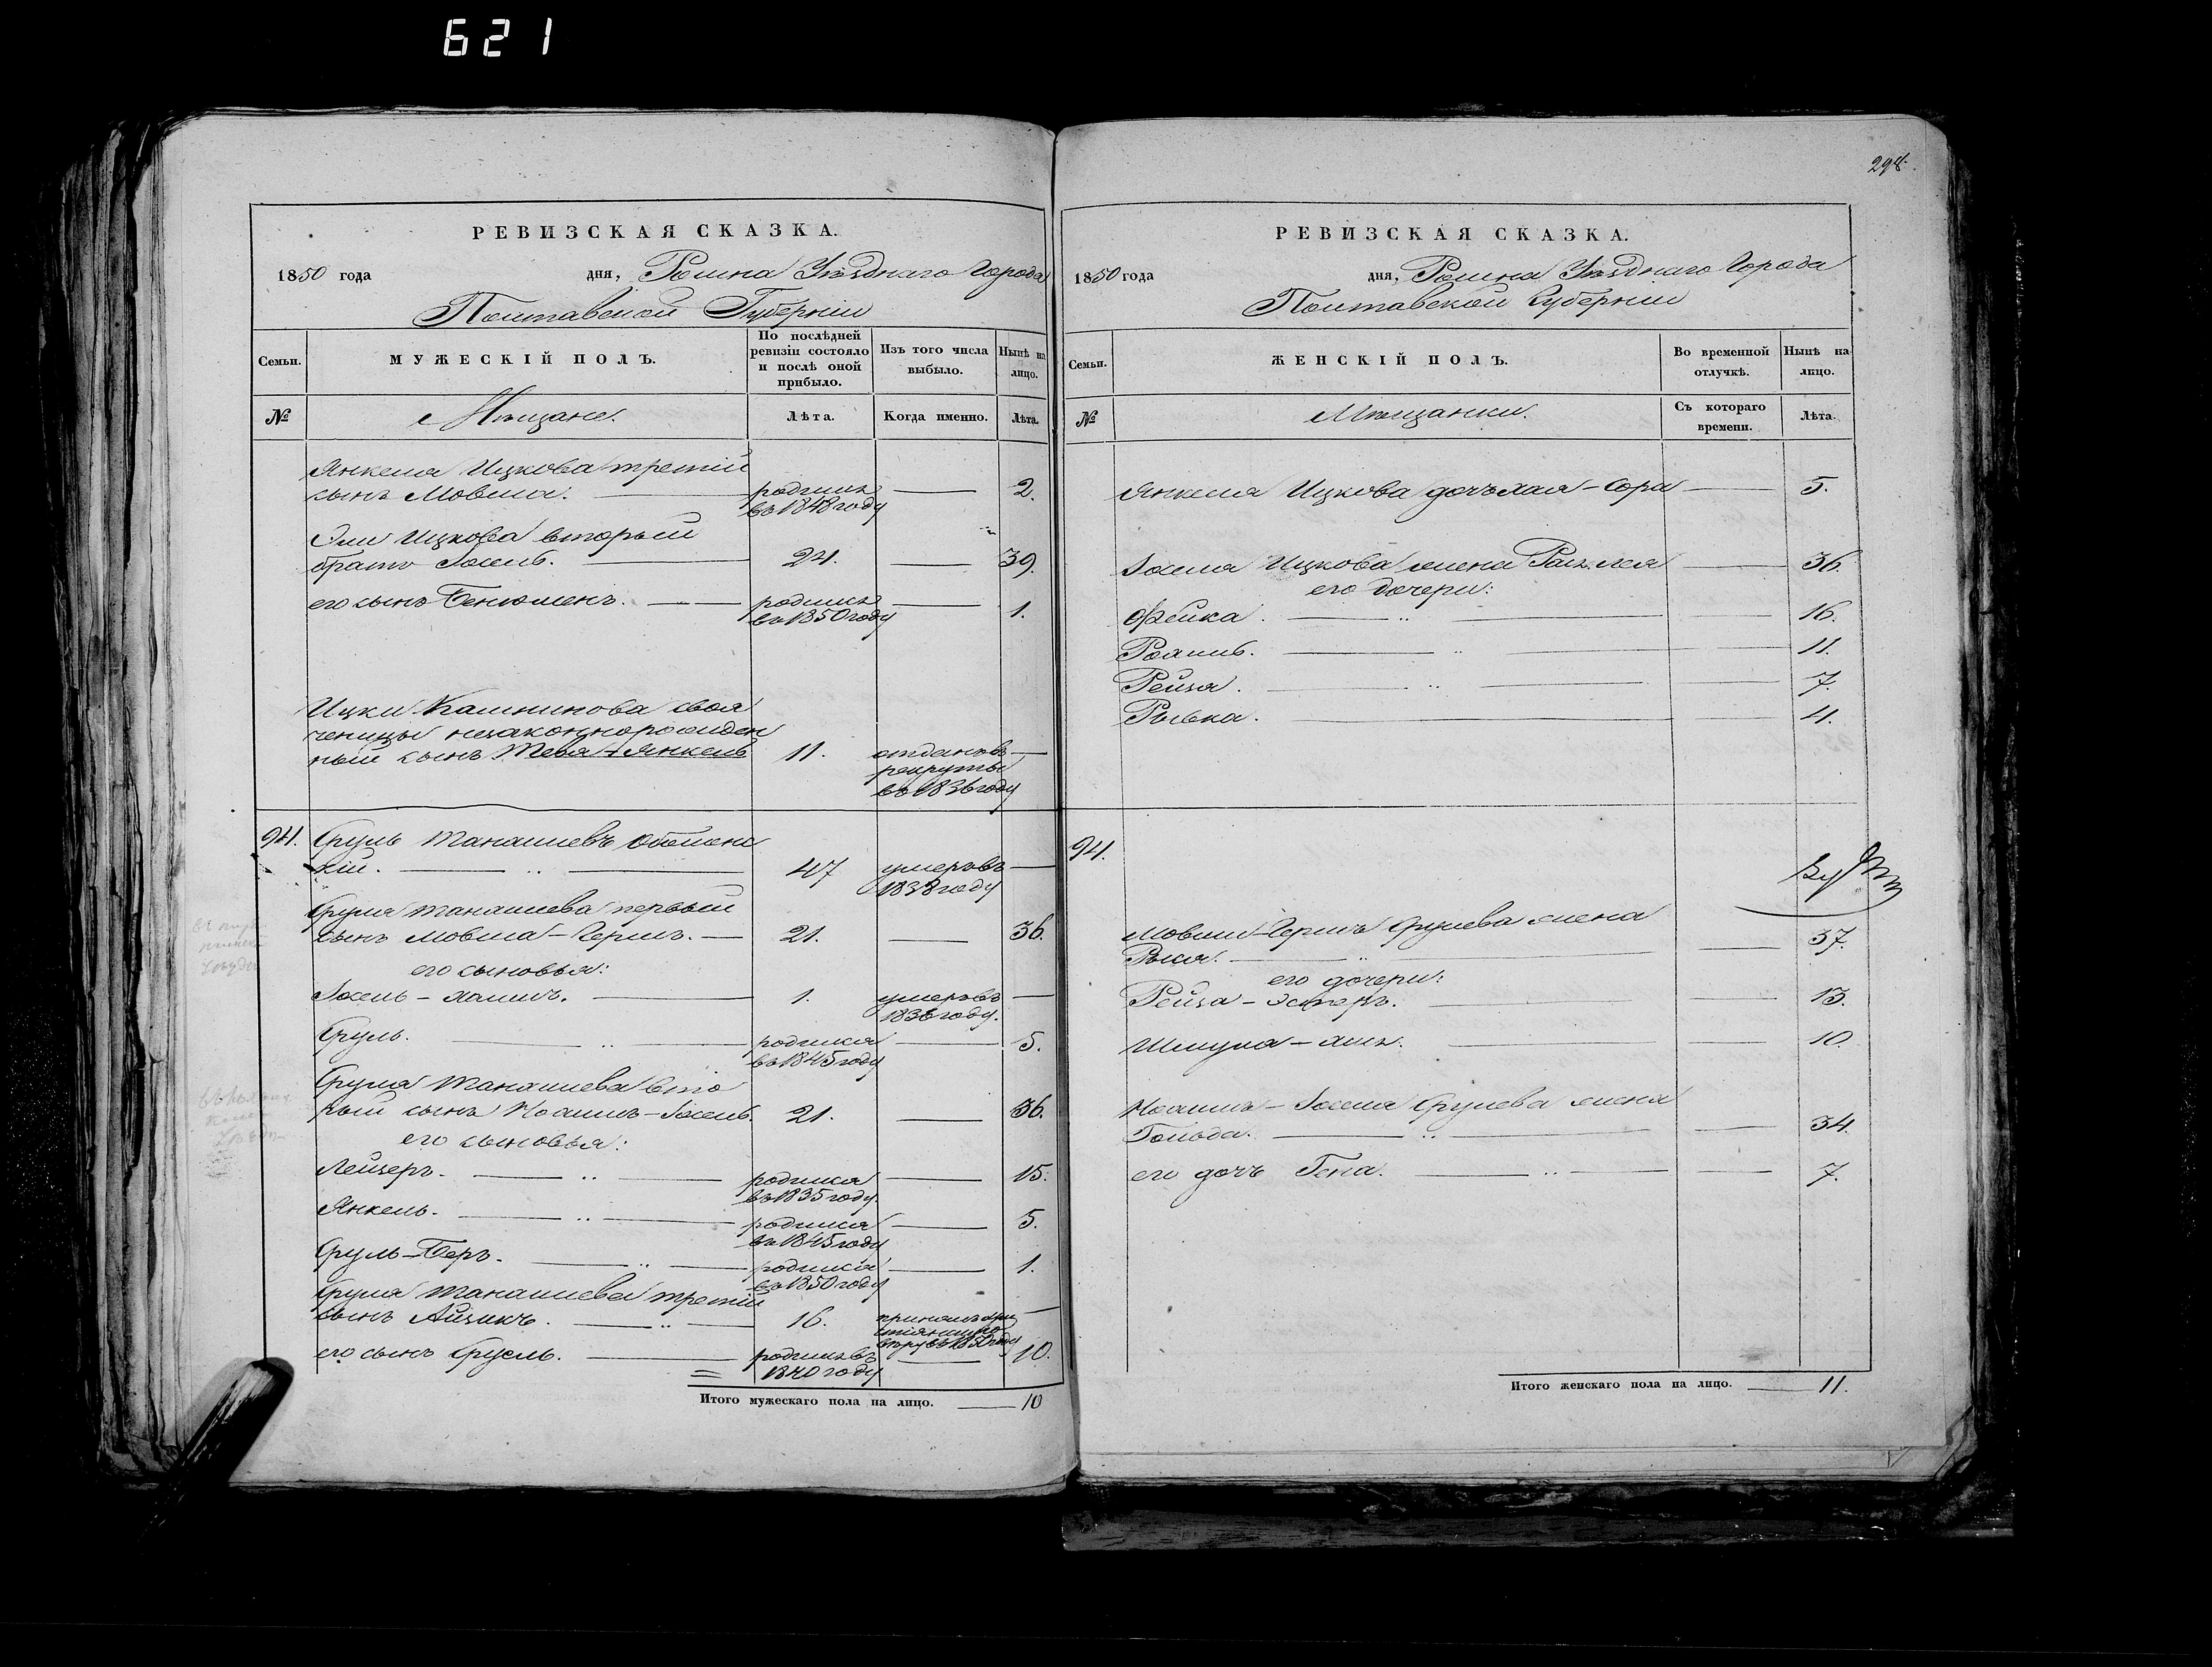 621
298.
РЕВИЗСКАЯ СКАЗКА.
1850 года дня, Ромна Уѣзднаго Города
Полтавской Губерніи
Семьи. МУЖЕСКІЙ ПОЛЪ. По послѣдней ревизіи состояло и послѣ оной прибыло. Изъ того числа выбыло. Нынѣ на лицо.
№ Мѣщане. Лѣта. Когда именно. Лѣта.
Янкеля Ицкова третій
сынъ Мовша. родился 2.
въ 1848 году
Эли Ицкова вторый
братъ Іосель. 24. 39.
его сынъ Бенюменъ. родился 1.
въ 1850 году
Ицки Калмикова своя
ченицы незаконнорожден
ный сынъ Тевя-Янкель 11. отданъ въ
рекруты
въ 1836 году
94. Сруль Манашевъ
кій. 47 умеръ въ
1838 году
Сруля Манашева первый
сынъ Мовша-Гершъ. 21. 36.
его сыновья:
Іосель-Хаимъ. 1. умеръ въ
1836 году.
Сруль. родился 5.
въ 1845 году
Сруля Манашева вто
рый сынъ Іосель. 21. 36.
его сыновья:
Лейзеръ. родился 15.
въ 1835 году.
Янкель. родился 5.
въ 1845 году
Сруль-Беръ. родился 1.
въ 1850 году
Сруля Манашева третій
сынъ Айзикъ. 16. принялъ хри
стіянскую
вѣру въ 1850 году
его сынъ родился въ 10.
1840 году
Итого мужескаго пола на лицо. 10
РЕВИЗСКАЯ СКАЗКА.
1850 года дня, Ромна Уѣзднаго Города
Полтавской Губерніи
Семьи. ЖЕНСКІЙ ПОЛЪ. Во временной отлучкѣ. Нынѣ на лицо.
№ Мѣщанки. Съ котораго времени. Лѣта.
Янкеля Ицкова дочь Хая-Сора 5.
Іоселя Ицкова жена 36.
его дочери:
Фейка. 16.
11.
Рейза. 7.
Рывка. 4.
94.
Мовши-Герша Срулева жена
37.
его дочери:
Рейза-Эстеръ. 13.
10.
Іоселя Срулева жена
Гольда. 34.
его дочь Гена. 7.
Итого женскаго пола на лицо. 11.